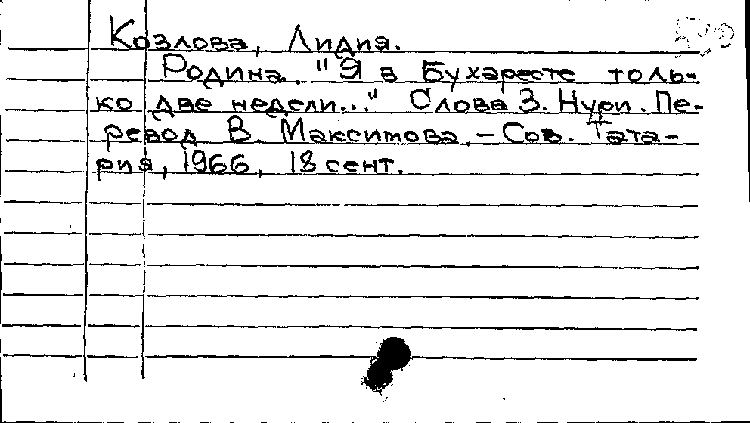 Козлова, Лидия.
Родина. "Я в Бухаресте толь-
ко две недели..." Слова З. Нури. Пе-
ревод В. Максимова. - Сов. Тата-
рия, 1966, 18 сент.